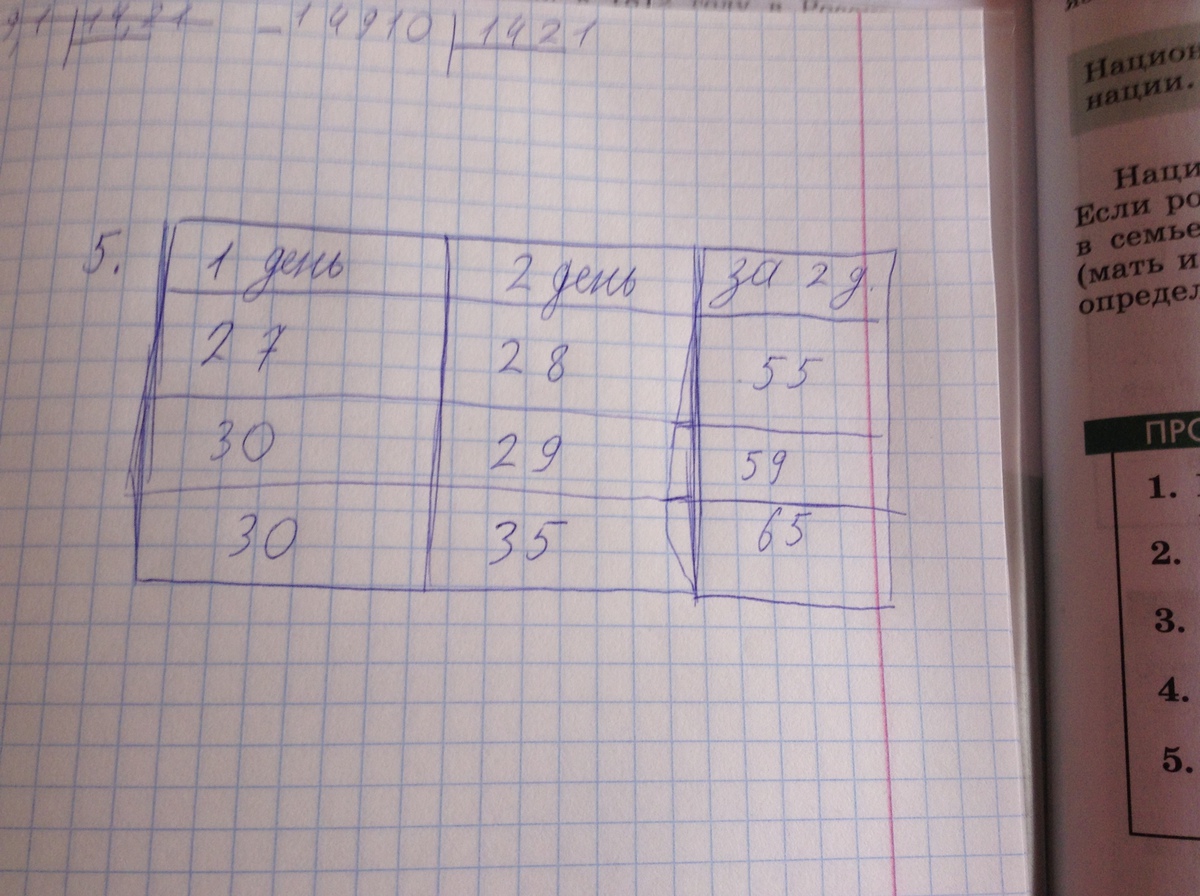 9,1 14,21 - 14910 1421
5.
1 день 2 день за 2 д.
27 28 55
30 29 59
30 35 65
Национ
нации.
Наци
Если ро
в семье
(мать и
определ
ПРО
1.
2.
3.
4.
5.